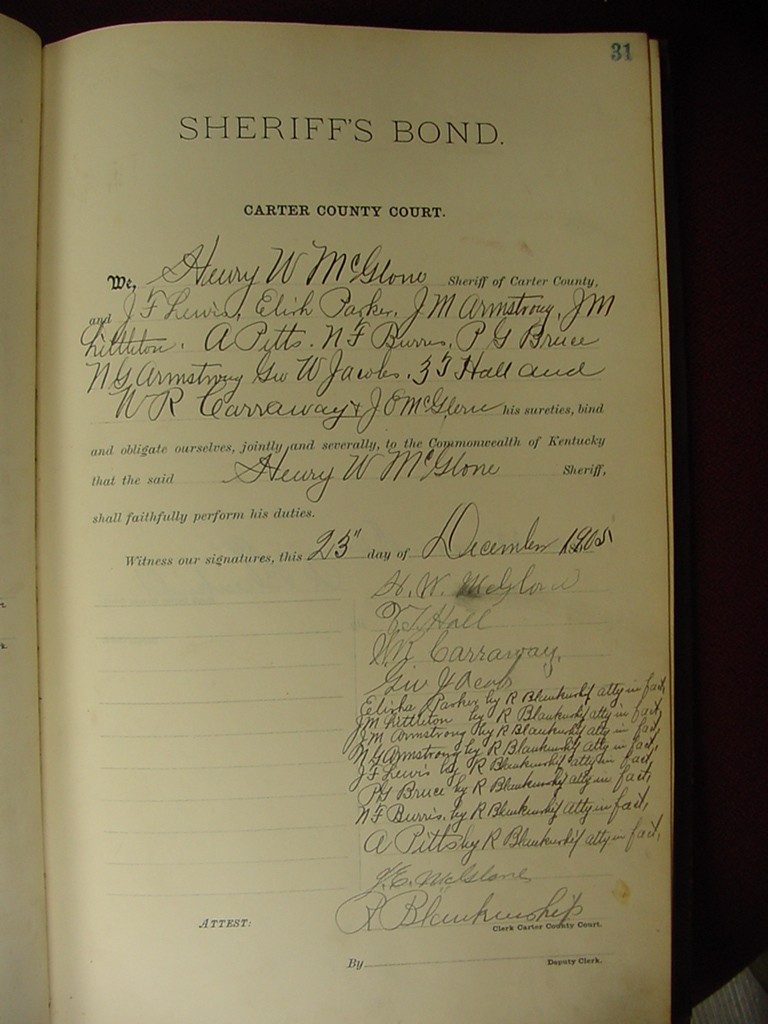 31
SHERIFF'S BOND.
CARTER COUNTY COURT.
We, Henry W McGlone Sheriff of Carter County,
and J F Lewis, Elish Parker, J M Armstrong, J M
Littleton. A Pitts. N F Burris, P G Bruce
N G Armstrong Geo W Jacobs. Z T Hall and
W R Carraway & J O McGlone his sureties, bind
and obligate ourselves, jointly and severally, to the Commonwealth of Kentucky
that the said Henry W McGlone Sheriff,
shall faithfully perform his duties.
Witness our signatures, this 23" day of December 1905
H. W. McGlone
Z. T. Hall
W R Carraway.
Geo Jacobs
Elisha Parker by R Blankenship atty in fact,
J M Littleton by R Blankenship atty in fact,
J M Armstrong by R Blankenship atty in fact,
N G Armstrong by R Blankenship atty in fact,
J F Lewis by R Blankenship atty in fact,
P G Bruce by R Blankenship atty in fact,
N F Burris, by R Blankenship atty in fact,
A Pitts by R Blankenship atty in fact,
McGlone
ATTEST: R Blankenship
Clerk Carter County Court.
By Deputy Clerk.